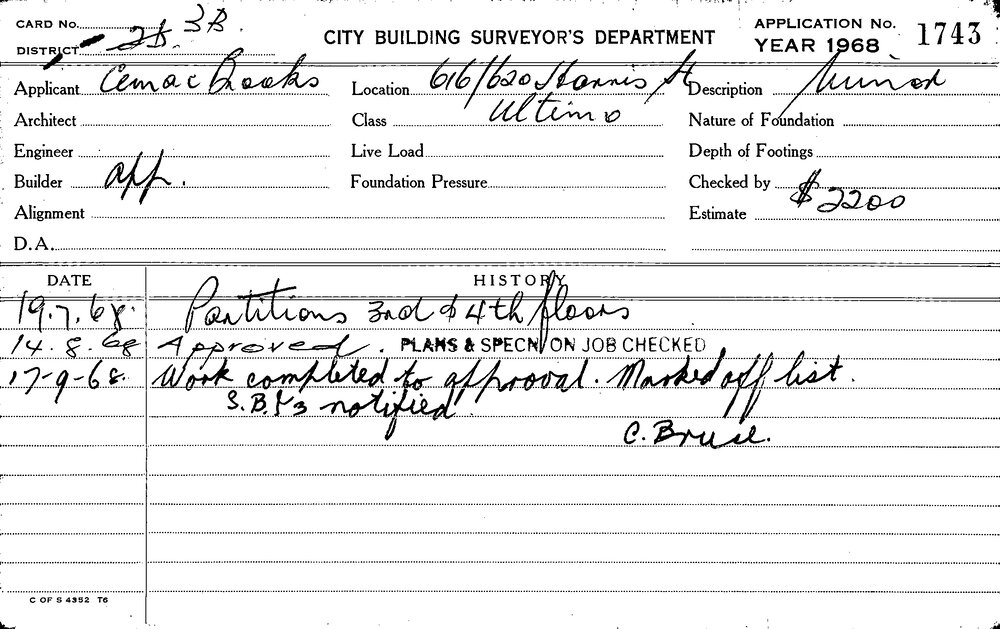 CARD No. 3B.
DISTRICT 2B.
CITY BUILDING SURVEYOR'S DEPARTMENT
APPLICATION No. 1743
YEAR 1968
Applicant Cemac Brooks Location 616/620 Harris St Description Minor
Ultimo
Architect Class Nature of Foundation
Engineer Live Load Depth of Footings
Builder app. Foundation Pressure Checked by
Alignment Estimate $2200
D.A.
DATE HISTORY
19.7.68. Partitions 3rd & 4th floors
14.8.68 Approved. PLANS & SPECN/ ON JOB CHECKED
17-9-68. Work completed to approval. Marked off list.
notified.
C. Bruse.
C OF S 4352 T6